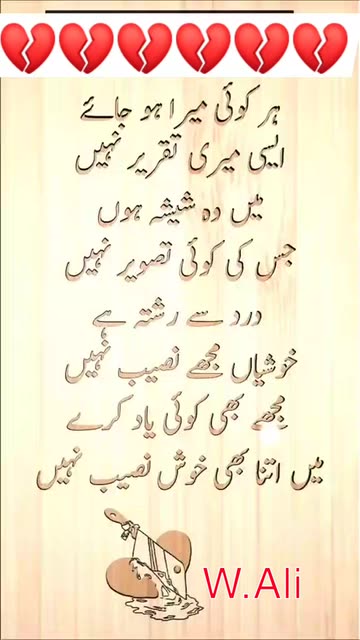 ہر کوئی میرا ہو جائے
ایسی میری تقریر نہیں
میں وہ شیشہ ہوں
جس کی کوئی تصویر نہیں
درد سے رشتہ ہے
خوشیاں مجھے نصیب نہیں
مجھے بھی کوئی یاد کرے
میں اتنا بھی خوش نصیب نہیں
W.Ali